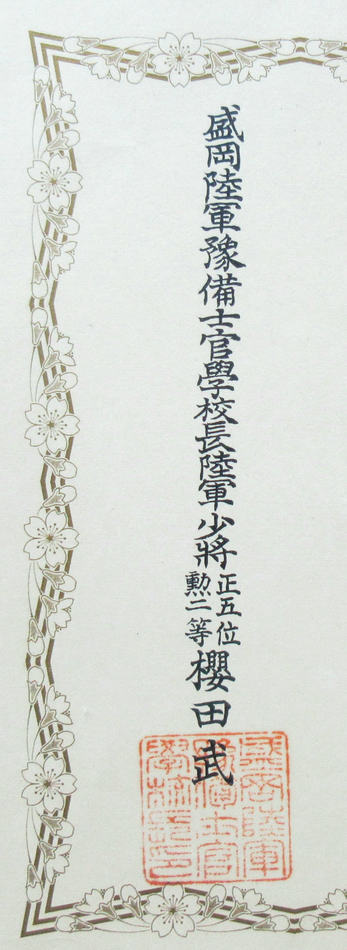 盛岡陸軍豫備士官學校長陸軍少將
正五位
勲二等
櫻田武
盛岡陸軍
豫備士官
學校長印